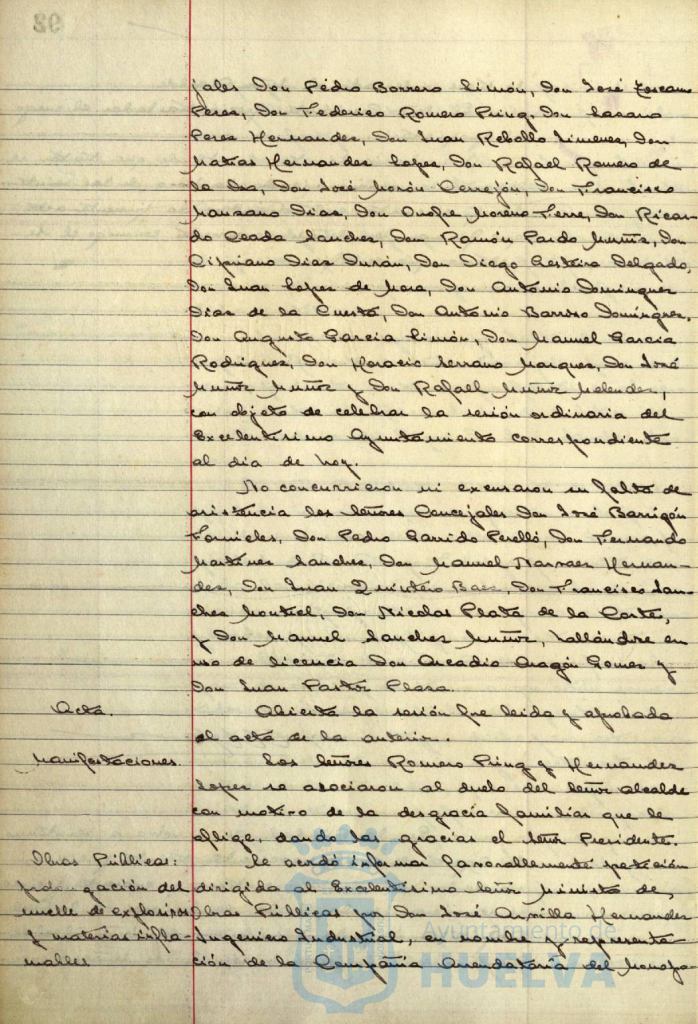 92
jales Don Pedro Borrero Limón, Don José Toscano
Perez, Don Federico Romero Pring, Don Lazaro
Perez Hernandez, Don Juan Rebollo Jimenez, Don
Matias Hernandez Lopez, Don Rafael Romero de
la Osa, Don José Morón Cerrejón, Don Francisco
Manzano Diaz, Don Onofre Moreno Ferre, Don Ricar-
do Ceada Sanchez, Don Ramón Pardo Muñiz, Don
Cipriano Diaz Durán, Don Diego Delgado,
Don Juan Lopez de Mora, Don António Dominguez
Diaz de la Cuesta, Don António Barroso Dominguez,
Don Augusto Garcia Limón, Don Manuel Garcia
Rodriguez, Don Horacio Serrano Marquez, Don José
Muñoz Muñoz y Don Rafael Muñoz Melendez,
con objeto de celebrar la sesión ordinaria del
Excelentisimo Ayuntamiento correspondiente
al dia de hoy.
No concurrieron ni excusaron su falta de
asistencia los Señores Concejales Don José Barrigón
Fornieles, Don Pedro Garrido Perelló, Don Fernando
Martinez Sanchez, Don Manuel Narvaez Hernan-
dez, Don Juan Quintero Baez, Don Francisco San-
chez Montiel, Don Nicolas Plata de la Corte,
y Don Manuel Sanchez Muñoz, hallándose en
uso de licencia Don Arcadio Aragón Gomez y
Don Juan Pastor Plaza.
Acta.
Abierta la sesión fue leida y aprobada
el acta de la anterior.
Manifestaciones.
Los Señores Romero Pring y Hernandez
Lopez se asociaron al duelo del Señor Alcalde
con motivo de la desgracia familiar que le
aflige, dando las gracias el Señor Presidente.
Obras Públicas:
prolongación del
muelle de explosivos
y materias infla-
mables
Se acordó informar favorablemente petición
dirigida al Excelentisimo Señor Ministro de
Obras Públicas por Don José Hernandez
Ingeniero Industrial, en nombre y representa-
ción de la Compañia Arrendataria del Monopo-
Ayuntamiento de
HUELVA